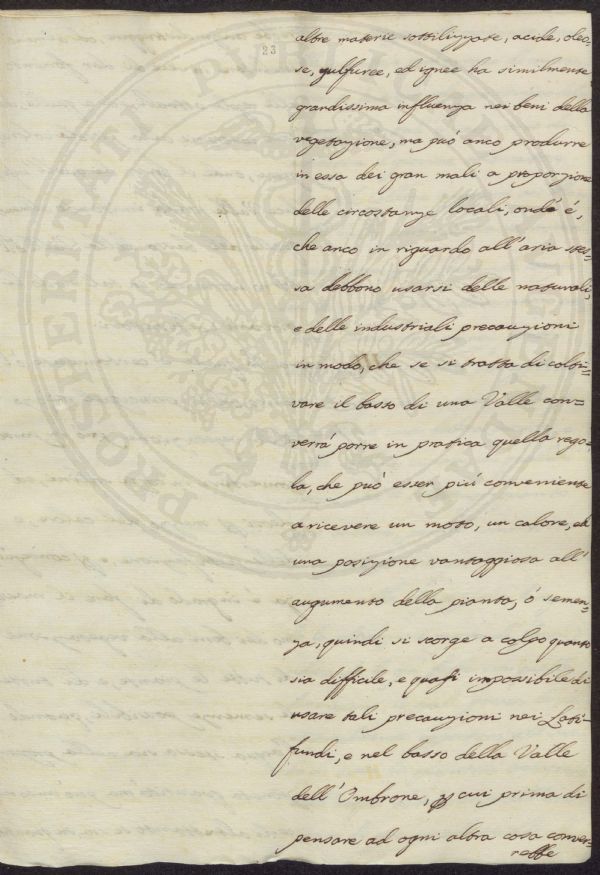 23
altre materie sottilizzate, acide, oleo-
se, sulfuree, ed ignee ha similmente
grandissima influenza nei beni della
vegetazione, ma può anco produrre
in essa dei gran mali a proporzione
delle circostanze locali, ond'è,
che anco in riguardo all'aria stes-
sa debbono usarsi delle naturali,
e delle industriali precauzioni
in modo, che se si tratta di colti-
vare il basso di una Valle con-
verrá porre in pratica quella rego-
la, che può esser piú conveniente
a ricevere un moto, un calore, ed
una posizione vantaggiosa all'
augumento della pianta, ó semen-
za, quindi si scorge a colpo quanto
sia difficile, e quasi impossibile di
usare tali precauzioni nei Lati-
fundi, e nel basso della Valle
dell'Ombrone, cui prima di
pensare ad ogni altra cosa conver-
rebbe
PROSPERITATI PUBLICAE